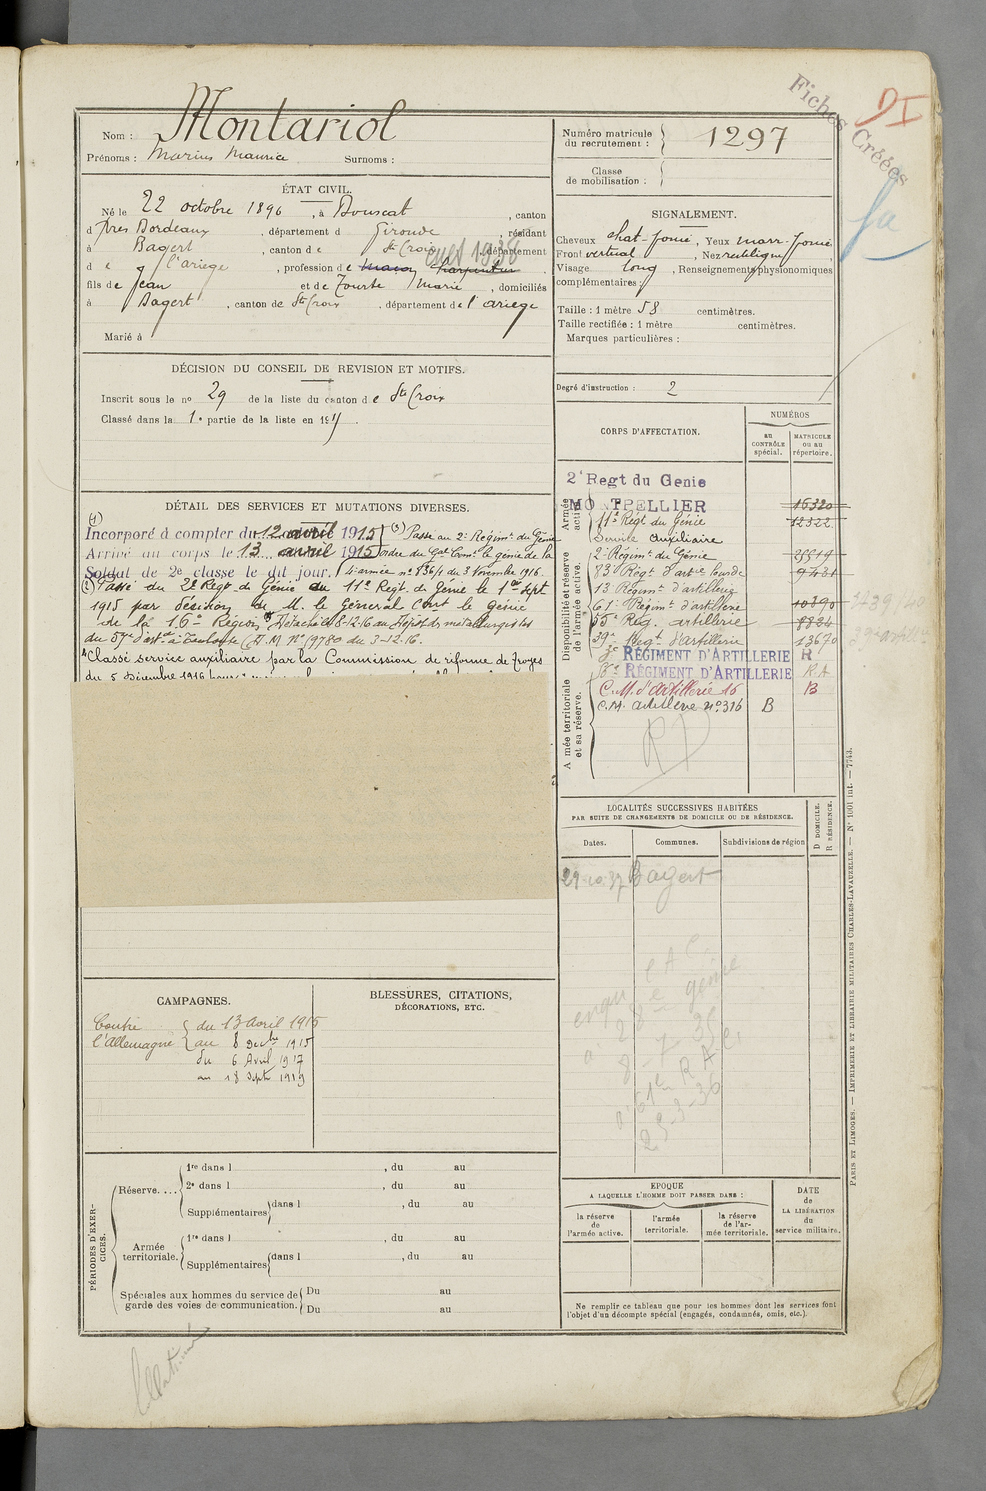 Fiches Créées
DI
Nom : Montariol
Prénoms : Marius Maurice Surnoms :
Numéro matricule du recrutement : 1297
Classe de mobilisation :
ÉTAT CIVIL.
Né le 22 octobre 1896, à Bouscat, canton
d près Bordeaux, département d Gironde, résidant
à Bagert, canton de Ste Croix, département
d e l'ariège, profession de
fils de Jean et de Marie, domiciliés
à Bagert, canton de Ste Croix, département de l'ariège
Marié à
SIGNALEMENT.
Cheveux chat-foncé, Yeux marr-foncé
Front vertical, Nez rectiligne
Visage long, Renseignements physionomiques
complémentaires :
Taille : 1 mètre 58 centimètres.
Taille rectifiée : 1 mètre centimètres.
Marques particulières :
Degré d'instruction : 2
DÉCISION DU CONSEIL DE REVISION ET MOTIFS.
Inscrit sous le n° 29 de la liste du canton d e Ste Croix
Classé dans la 1e partie de la liste en 191
DÉTAIL DES SERVICES ET MUTATIONS DIVERSES.
(1)
Incorporé à compter du 12 avril 1915
Arrivé au corps le 13 avril 1915
Soldat de 2e classe le dit jour.
(3) Passé au 2e Régimt du Génie
ordre du Gal Comt le génie de la
4e armée n° 836/1 du 3 Novembre 1916.
(2) Passé du 2e Regt du Génie au 11e Regt du Génie le 1er Sept
1915 par décision de M. le Général Comt le génie
de la 16e Région Détaché le 8-12-16 au Dépôt des métallurgistes
du 57e d'artie à Toulouse (D.M. N° 19780 du 3-12-16.
Classé service auxiliaire par la Commission de réforme de Troyes
du 5 Décembre 1916
CORPS D'AFFECTATION.
NUMÉROS
au CONTRÔLE spécial.
MATRICULE ou au répertoire.
Armée active.
2e Regt du Genie
MONTPELLIER 16320
11e Régt du Génie 12322
Service Auxiliaire
Disponibilité et réserve de l'armée active.
2e Régimt du Génie
83e Régt d'artie lourde
13 Régimt d'artillerie
61e Régimt d'artillerie 10390
55e Reg. artillerie 8884
39e Regt d'artillerie 13670
3e RÉGIMENT D'ARTILLERIE R
RÉGIMENT D'ARTILLERIE R.A
Armée territoriale et sa réserve.
C.M. d'artillerie 16 B
C.M. artillerie n° 316 B
LOCALITÉS SUCCESSIVES HABITÉES
PAR SUITE DE CHANGEMENTS DE DOMICILE OU DE RÉSIDENCE.
Dates. Communes. Subdivisions de région
D DOMICILE. R RÉSIDENCE.
29-10-37 Bagert
CAMPAGNES.
Contre l'Allemagne
du 13 Avril 1915
au 8 Decbre 1915
du 6 Avril 1917
au 18 Septe 1919
BLESSURES, CITATIONS,
DÉCORATIONS, ETC.
PÉRIODES D'EXERCICES.
Réserve....
1re dans l , du au
2e dans l , du au
Supplémentaires dans l , du au
Armée territoriale.
1re dans l , du au
Supplémentaires dans l , du au
Spéciales aux hommes du service de garde des voies de communication.
Du au
Du au
EPOQUE
A LAQUELLE L'HOMME DOIT PASSER DANS :
la réserve de l'armée active.
l'armée territoriale.
la réserve de l'armée territoriale.
DATE de LA LIBÉRATION du service militaire.
Ne remplir ce tableau que pour les hommes dont les services font
l'objet d'un décompte spécial (engagés, condamnés, omis, etc.).
PARIS ET LIMOGES. — IMPRIMERIE ET LIBRAIRIE MILITAIRES CHARLES-LAVAUZELLE. — N° 1001 int. — 7743.